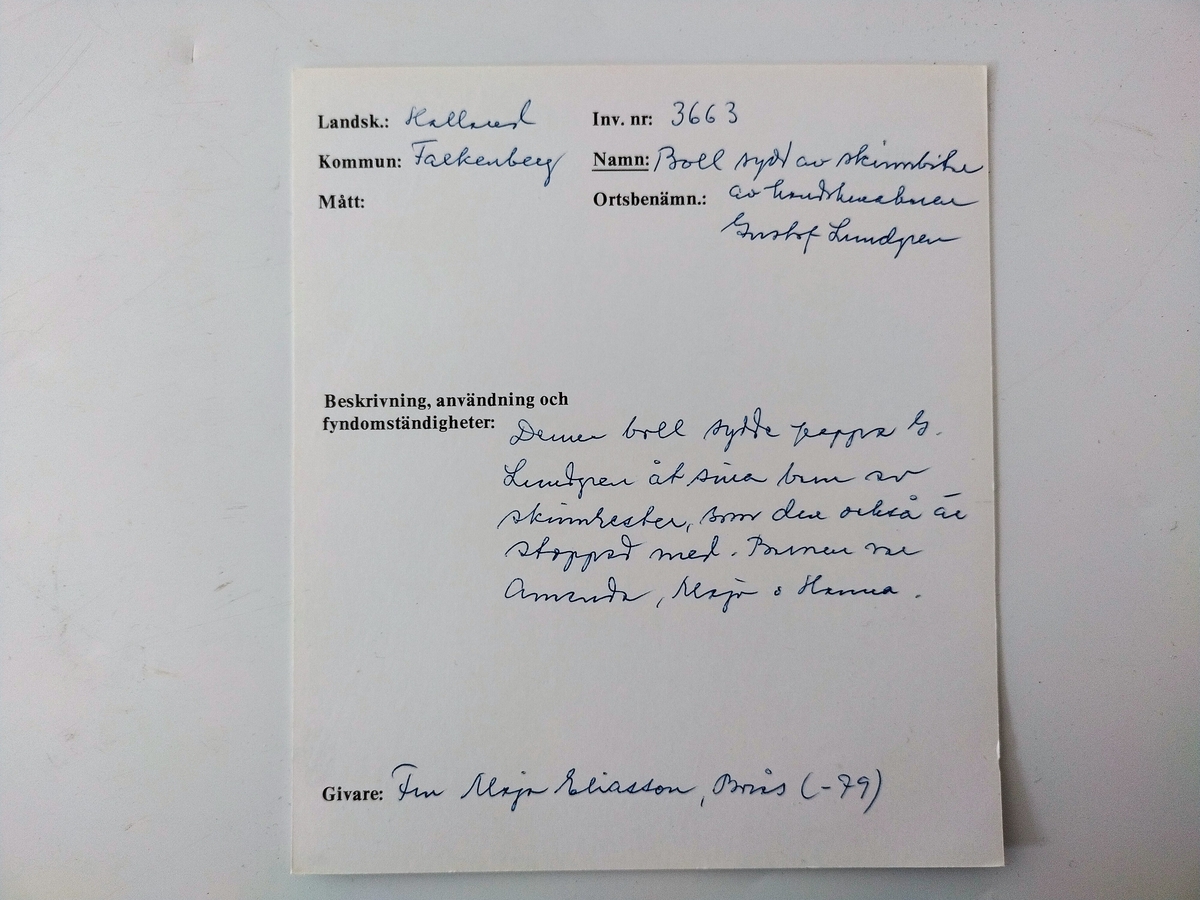 Landsk.: Halland
Inv. nr: 3663
Kommun: Falkenberg
Namn: Boll sydd av skinnbitar
Mått:
Ortsbenämn.: av handskmakaren
Gustof Lundgren
Beskrivning, användning och
fyndomständigheter:
Denna boll sydde pappa G.
Lundgren åt sina barn av
skinnrester, som den också är
stoppad med. Barnen var
Amanda, Maja o Hanna.
Givare: Fru Maja Eliasson, Borås (-79)